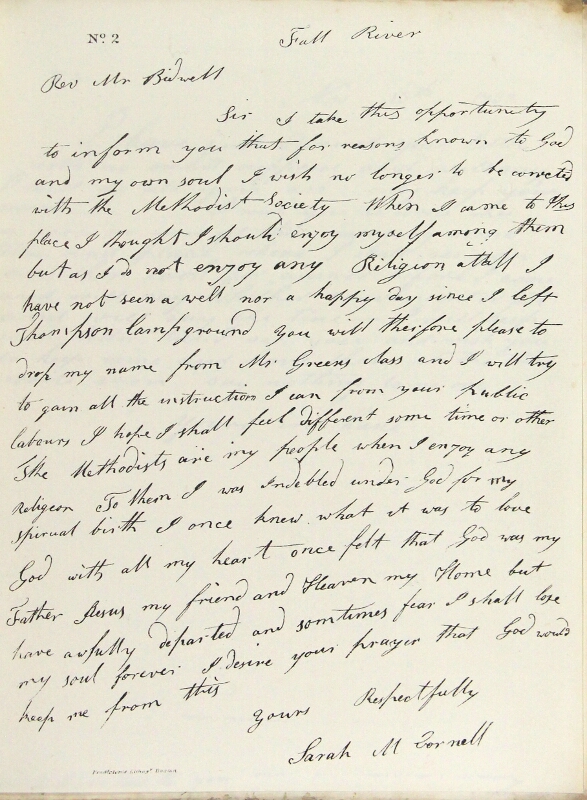 No. 2
Fall River
Rev Mr Bidwell
Sir I take this opportunity
to inform you that for reasons known to God
and my own soul I wish no longer to be conected
with the Methodist Society When I came to this
place I thought I should enjoy myself among them
but as I do not enjoy any Religion atall I
have not seen a well nor a happy day since I left
Thompson Campground you will theifore please to
drop my name from Mr. Greens class and I will try
to gain all the instruction I can from your public
labours I hope I shall feel different some time or other
The Methodists are my people when I enjoy any
Religeon To them I was Indebled under God for my
spirual birth I once knew what it was to love
God with all my heart once felt that God was my
Father Jesus my friend and Heaven my Home but
have awfully departed and somtimes fear I shall lose
my soul forever I desire your prayer that God would
keep me from this
Yours Respectfully
Sarah M Cornell